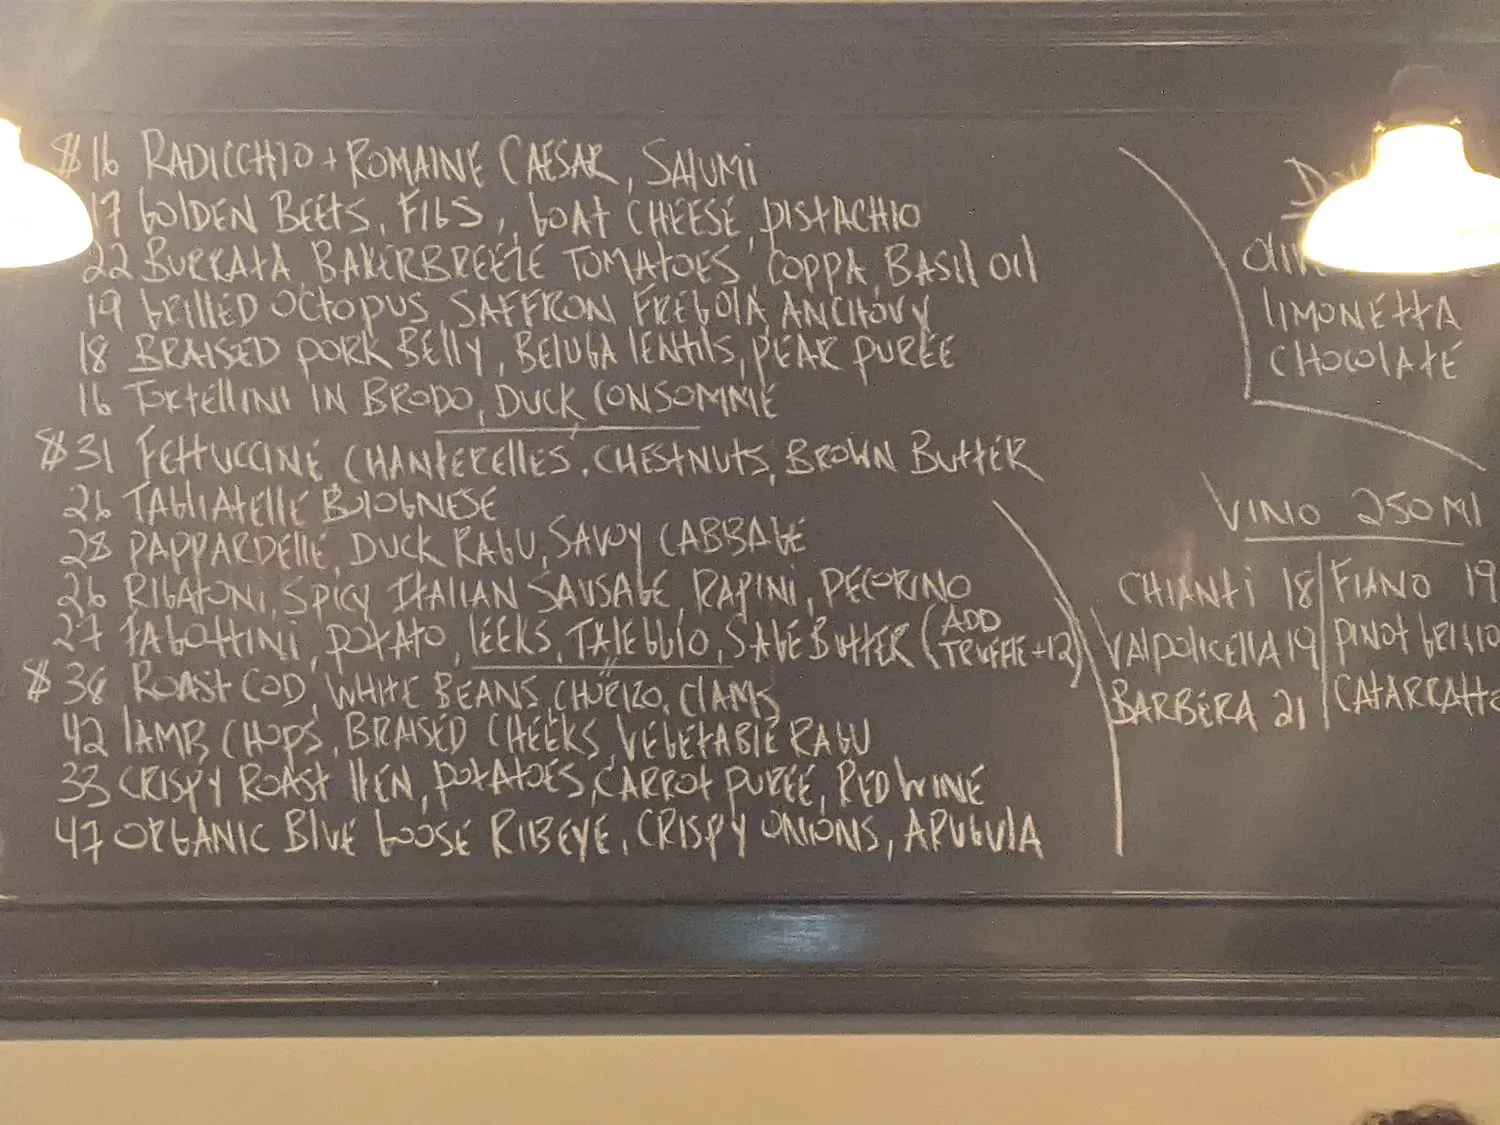 $16 RADICCHIO + ROMAINE CAESAR, SALUMI
17 GOLDEN BEETS, FIGS, GOAT CHEESE, PISTACHIO
22 BURRATA, BAKERBREEZE TOMATOES, COPPA, BASIL OIL
19 GRILLED OCTOPUS, SAFFRON FREGOLA, ANCHOVY
18 BRAISED PORK BELLY, BELUGA LENTILS, PEAR PURÉE
16 TORTELLINI IN BRODO, DUCK CONSOMMÉ
$31 FETTUCCINE, CHANTERELLES, CHESTNUTS, BROWN BUTTER
26 TAGLIATELLE BOLOGNESE
28 PAPPARDELLE, DUCK RAGU, SAVOY CABBAGE
26 RIGATONI, SPICY ITALIAN SAUSAGE, RAPINI, PECORINO
27 FAGOTTINI, POTATO, LEEKS, TALEGGIO, SAGE BUTTER (ADD TRUFFLE +12)
$38 ROAST COD, WHITE BEANS, CHORIZO, CLAMS
42 LAMB CHOPS, BRAISED CHEEKS, VEGETABLE RAGU
33 CRISPY ROAST HEN, POTATOES, CARROT PURÉE, RED WINE
47 ORGANIC BLUE GOOSE RIBEYE, CRISPY ONIONS, ARUGULA
LIMONETTA
CHOCOLATE
VINO 250 Ml
CHIANTI 18 FIANO 19
VALPOLICELLA 19 PINOT GRIGIO
BARBERA 21 CATARRATTO